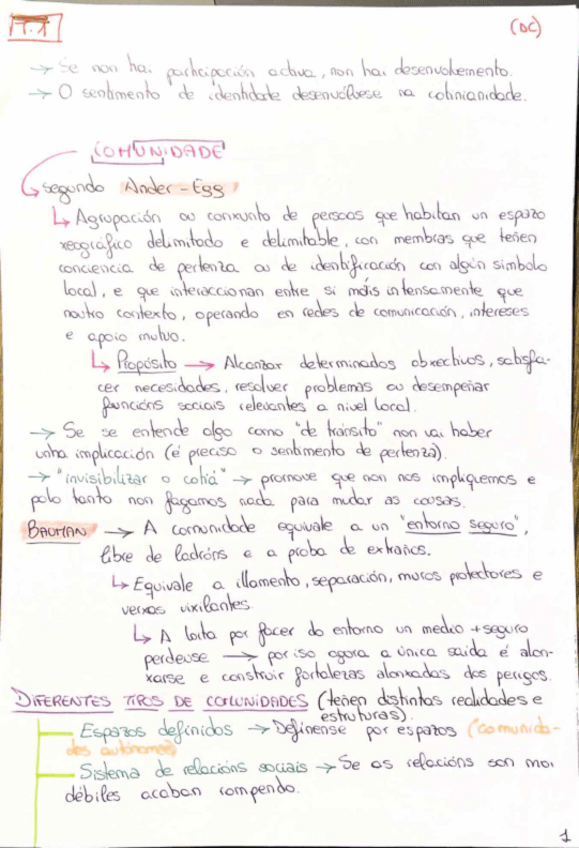 T.1
(DC)
→ Se non hai participación activa, non hai desenvolvemento.
→ O sentimento de identidade desenvólvese na cotinianidade.
COMUNIDADE
segundo Ander-Egg
↳ Agrupación ou conxunto de persoas que habitan un espazo
xeográfico delimitado e delimitable, con membros que teñen
conciencia de pertenza ou de identificación con algún símbolo
local, e que interaccionan entre si máis intensamente que
noutro contexto, operando en redes de comunicación, intereses
e apoio mutuo.
↳ Propósito → Alcanzar determinados obxectivos, satisfa-
cer necesidades, resolver problemas ou desempeñar
funcións sociais relevantes a nivel local.
→ Se se entende algo como "de tránsito" non vai haber
unha implicación (é preciso o sentimento de pertenza).
→ "invisibilizar o cotiá" → promove que non nos impliquemos e
polo tanto non fagamos nada para mudar as cousas.
BAUMAN → A comunidade equivale a un "entorno seguro",
libre de ladróns e a proba de extraños.
↳ Equivale a illamento, separación, muros protectores e
verxas vixilantes.
↳ A loita por facer do entorno un medio + seguro
perdeuse → por iso agora a única saída é alon-
xarse e construir fortalezas alonxadas dos perigos.
DIFERENTES TIPOS DE COMUNIDADES (teñen distintas realidades e
estruturas).
Espazos definidos → Defínense por espazos (comunida-
des autónomas)
Sistema de relacións sociais → Se as relacións son moi
débiles acaban rompendo.
1